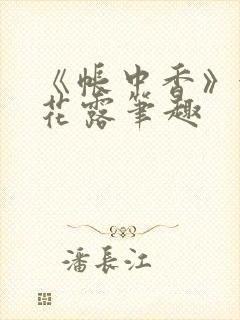 《帐中香》
花露笔趣
潘長江